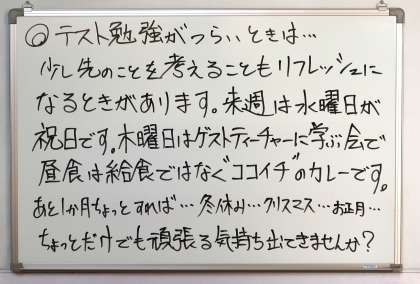 ◎テスト勉強がつらいときは…
少し先のことを考えることもリフレッシュに
なるときがあります。来週は水曜日が
祝日です。木曜日はゲストティーチャーに学ぶ会で
昼食は給食ではなく"ココイチ"のカレーです。
あと1か月ちょっとすれば…冬休み…クリスマス…お正月…
ちょっとだけでも頑張る気持ち出てきませんか？